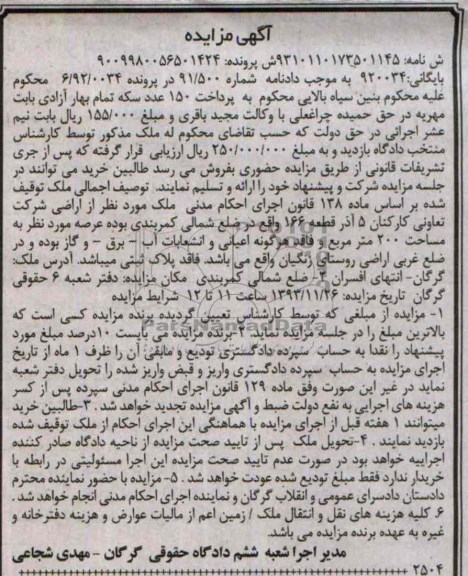 آگهی مزایده
ش نامه: ۹۳۱۰۱۱۰۱۷۳۵۰۱۱۴۵ش پرونده: ۹۰۰۹۹۸۰۰۵۶۵۰۱۴۲۴
بایگانی:۹۲۰۰۳۴ به موجب دادنامه شماره ۹۱/۵۰۰ در پرونده ۶/۹۲/۰۰۳۴ محکوم
علیه محکوم بنین سیاه بالایی محکوم به پرداخت ۱۵۰ عدد سکه تمام بهار آزادی بابت
مهریه در حق حمیده چراغعلی با وکالت مجید باقری و مبلغ ۱۵۵/۰۰۰ ریال بابت نیم
عشر اجرائی در حق دولت که حسب تقاضای محکوم له ملک مذکور توسط کارشناس
منتخب دادگاه بازدید و به مبلغ ۲۵۰/۰۰۰/۰۰۰ ریال ارزیابی قرار گرفته که پس از جری
تشریفات قانونی از طریق مزایده حضوری بفروش می رسد طالبین خرید می توانند در
جلسه مزایده شرکت و پیشنهاد خود را ارائه و تسلیم نمایند. توصیف اجمالی ملک توقیف
شده بر اساس ماده ۱۳۸ قانون اجرای احکام مدنی ملک مورد نظر از اراضی شرکت
تعاونی کارکنان ۵ آذر قطعه ۶۶ واقع در ضلع شمالی کمربندی بوده عرصه مورد نظر به
مساحت ۲۰۰ متر مربع و فاقد هرگونه اعیانی و انشعابات آب - برق - و گاز بوده و در
ضلع غربی اراضی روستای زنگیان واقع می باشد. فاقد پلاک ثبتی میباشد. آدرس ملک:
گرگان- انتهای افسران ۴ - ضلع شمالی کمربندی مکان مزایده: دفتر شعبه ۶ حقوقی
گرگان تاریخ مزایده: ۱۳۹۳/۱۱/۲۶ ساعت ۱۱ تا ۱۲ شرایط مزایده
۱- مزایده از مبلغی که توسط کارشناس تعیین گردیده برنده مزایده کسی است که
بالاترین مبلغ را در جلسه مزایده نماید. ۲-برنده مزایده می بایست ۱۰درصد مبلغ مورد
پیشنهاد را نقدا به حساب سپرده دادگستری تودیع و مابقی آن را ظرف ۱ ماه از تاریخ
اجرای مزایده به حساب سپرده دادگستری واریز و قبض واریز شده را تحویل دفتر شعبه
نماید در غیر این صورت وفق ماده ۱۲۹ قانون اجرای احکام مدنی سپرده پس از کسر
هزینه های اجرایی به نفع دولت ضبط و آگهی مزایده تجدید خواهد شد . ۳-طالبین خرید
میتوانند ۱ هفته قبل از اجرای مزایده با هماهنگی این اجرای احکام از ملک توقیف شده
بازدید نمایند . ۴-تحویل ملک پس از تایید صحت مزایده از ناحیه دادگاه صادر کننده
اجراییه خواهد بود در صورت عدم تایید صحت مزایده این اجرا مسئولیتی در رابطه با
خریدار ندارد فقط مبلغ تودیع شده عودت خواهد شد . ۵- مزایده با حضور نماینده محترم
دادستان دادسرای عمومی و انقلاب گرگان و نماینده اجرای احکام مدنی انجام خواهد شد .
۶. کلیه هزینه های نقل و انتقال ملک / زمین اعم از مالیات عوارض و هزینه دفترخانه و
غیره به عهده برنده مزایده می باشد.
مدیر اجرا شعبه ششم دادگاه حقوقی گرگان – مهدی شجاعی
۲۵۰۴